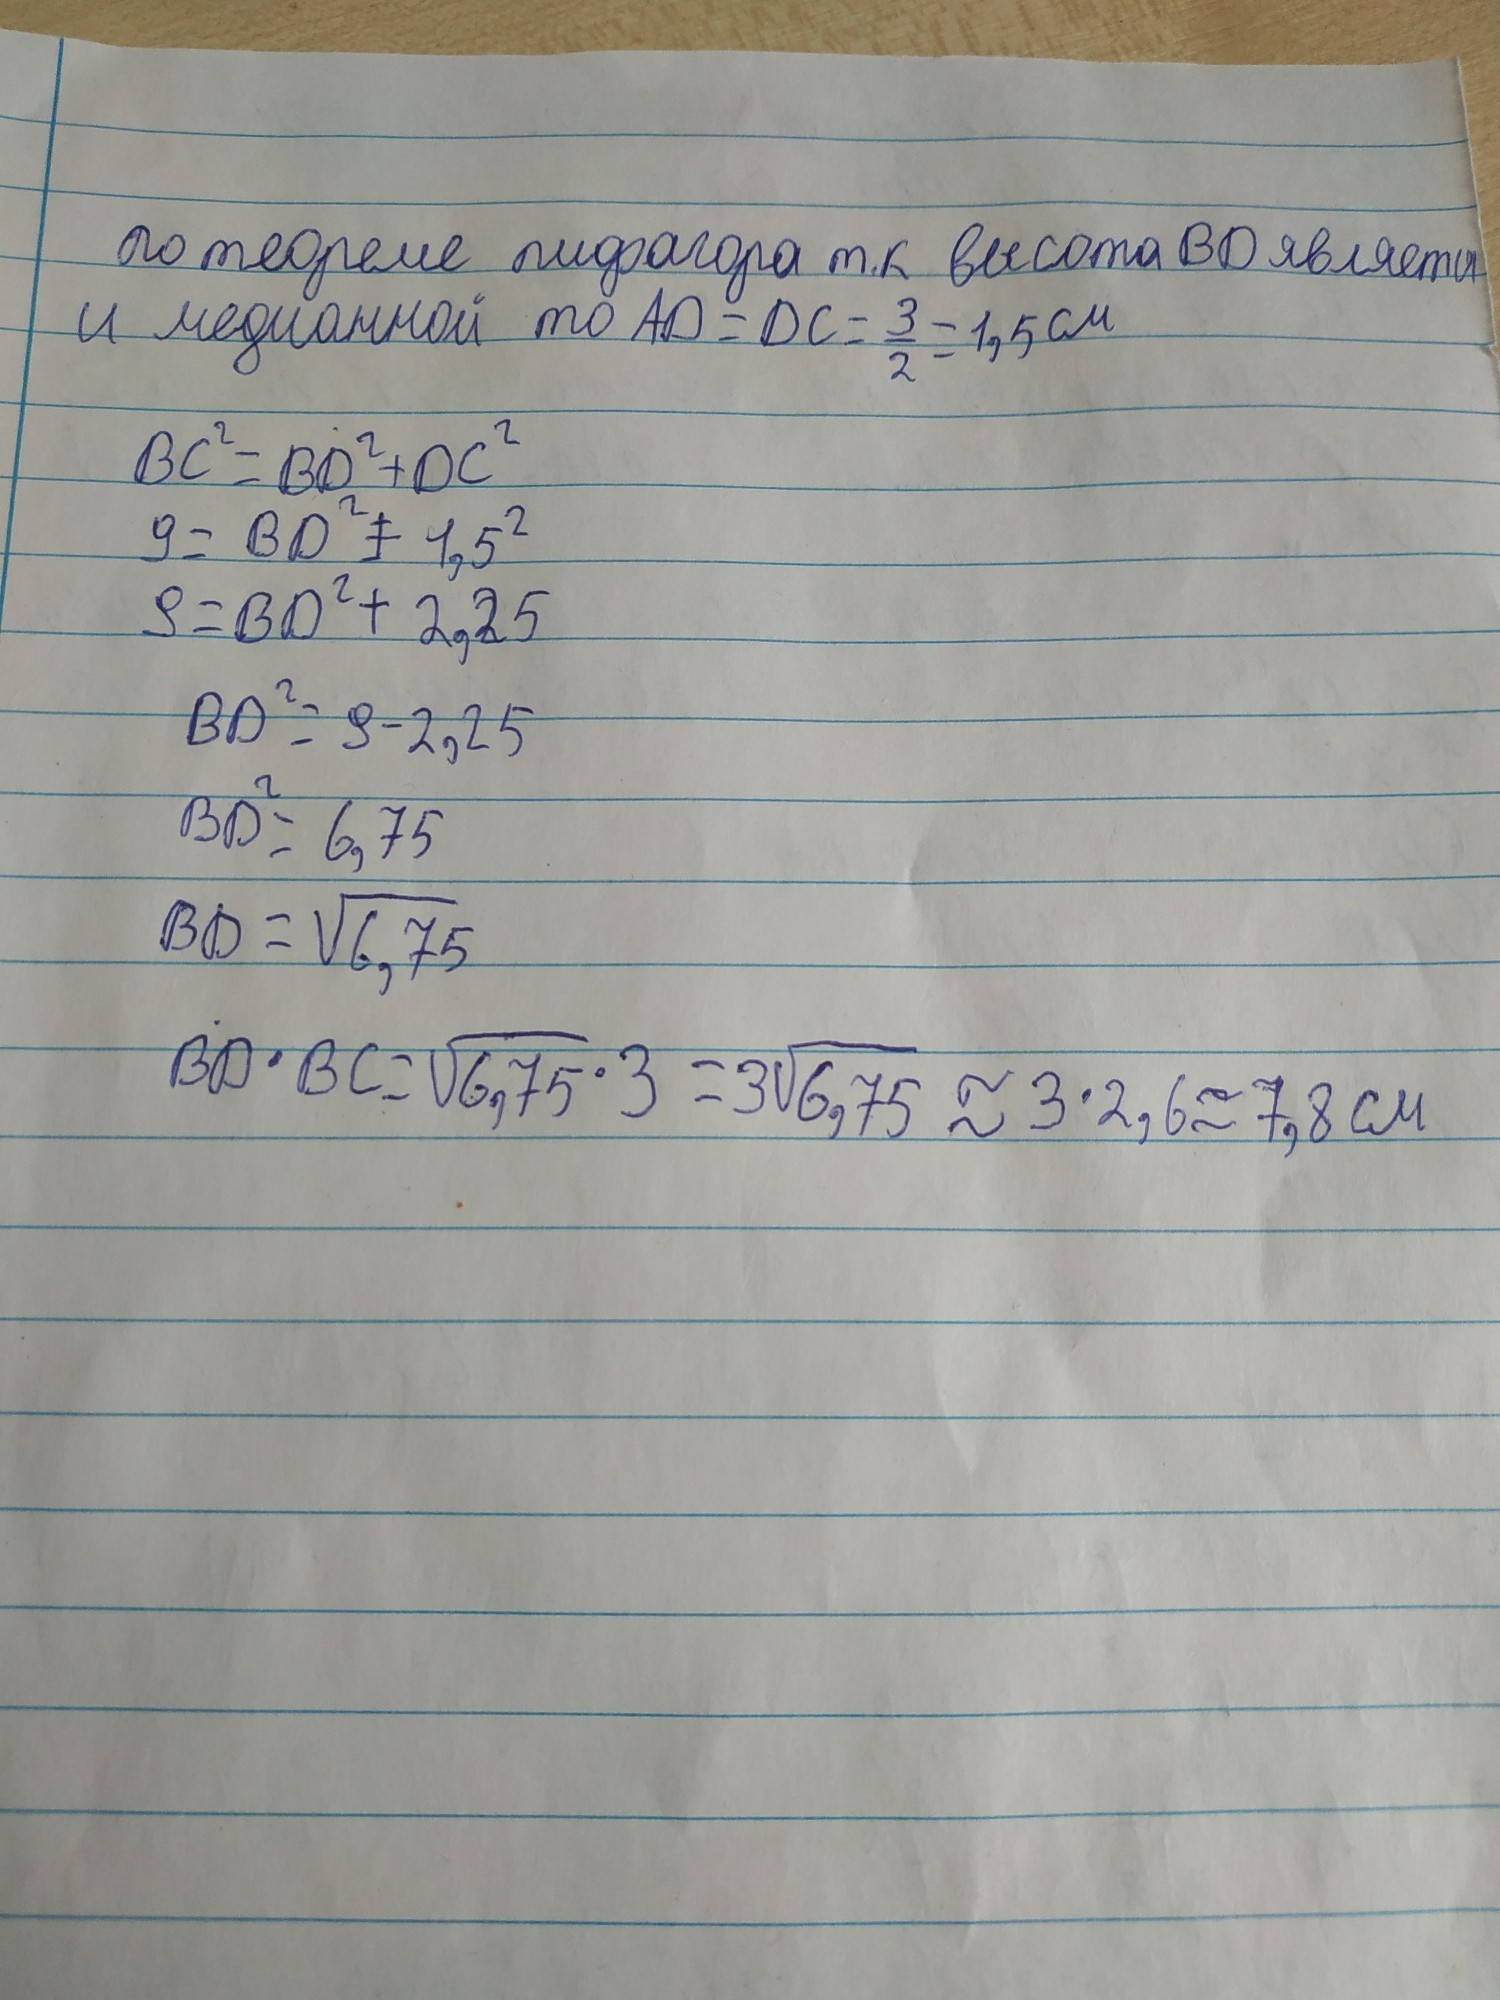 по теореме пифагора т.к высота BD является
и медианной то AD = DC = 3/2 = 1,5 см
BC² = BD² + DC²
9 = BD² + 1,5²
9 = BD² + 2,25
BD² = 9 - 2,25
BD² = 6,75
BD = √6,75
BD · BC = √6,75 · 3 = 3√6,75 ≈ 3 · 2,6 ≈ 7,8 см